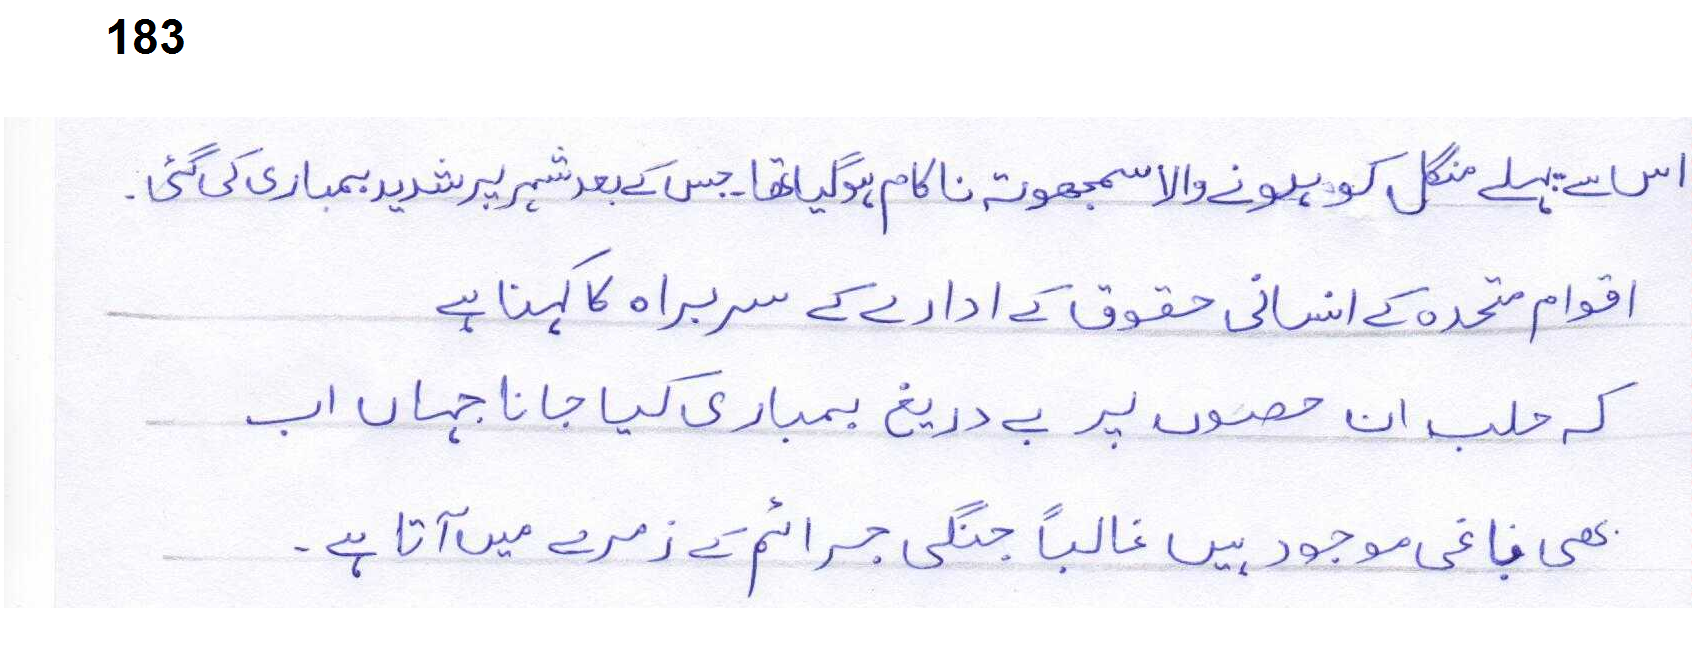 183
اس سے پہلے منگل کو ہونے والا سمجھوتہ ناکام ہوگیا تھا۔ جس کے بعد شہر پر شدید بمباری کی گئی۔
اقوام متحدہ کے انسانی حقوق کے ادارے کے سربراہ کا کہنا ہے
کہ حلب ان حصوں پر بے دریغ بمباری کیا جانا جہاں اب
بھی باغی موجود ہیں غالباً جنگی جرائم کے زمرے میں آتا ہے۔